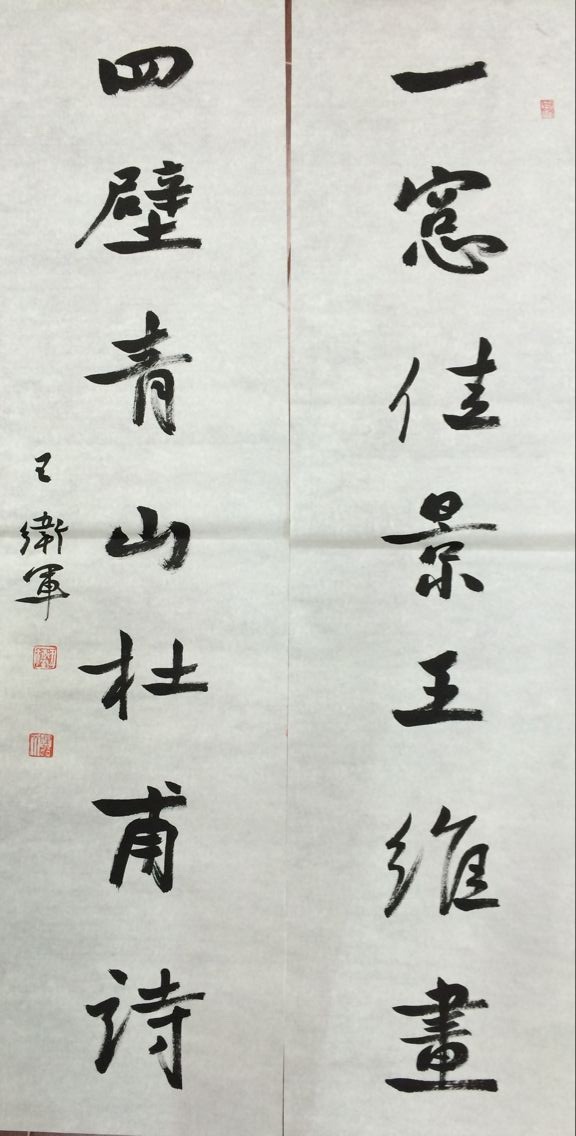 一窓佳景王維畫
四壁青山杜甫詩
王衛軍